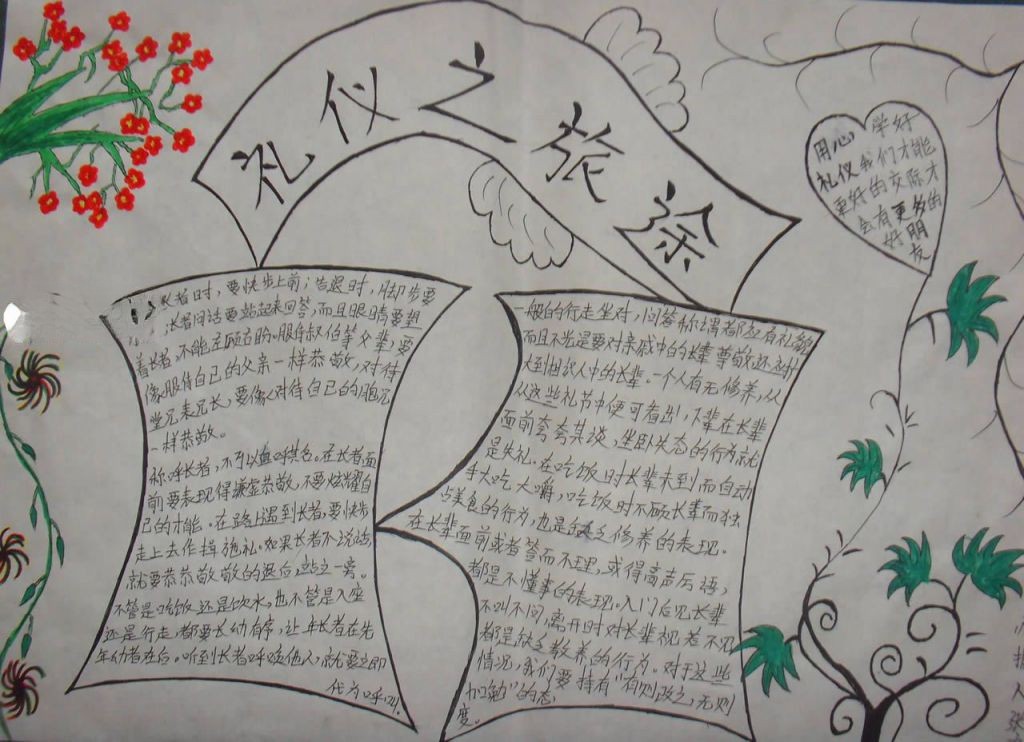 礼仪之旅途
用心 学好
礼仪我们才能
更好的交际才
会有更多的
好朋
友
长者时，要快步上前；告退时，脚步要
长者问话要站起来回答，而且眼睛要望
着长者，不能左顾右盼。服侍叔伯等父辈，要
像服侍自己的父亲一样恭敬，对待
堂兄表兄长，要像对待自己的胞兄
一样恭敬。
称呼长者，不可以直呼其名。在长者面
前要表现得谦虚恭敬，不要炫耀自
己的才能。在路上遇到长者，要快步
走上去作揖施礼。如果长者不说话，
就要恭恭敬敬的退后，站立一旁。
不管是吃饭还是饮水，也不管是入座
还是行走，都要长幼有序，让年长者在先
年幼者在后。听到长者呼唤他人，就要立即
代为呼叫。
一般的行走坐对，问答称谓者都应有礼貌
而且不光是要对亲戚中的长辈尊敬，还要
大到相识人中的长辈。一个人有无修养，从
从这些礼节中便可看出，小辈在长辈
面前夸夸其谈，坐卧失态的行为就
是失礼。在吃饭时长辈未到而自动
手大吃大嚼，吃饭时不顾长辈而独
占美食的行为，也是缺乏修养的表现。
在长辈面前或者答而不理，或得高声厉语，
都是不懂事的表现。入门后见长辈
不叫不问，离开时对长辈视若不见
都是缺乏教养的行为。对于这些
情况，我们要持有“有则改之，无则
加勉”的态
度。
人
张